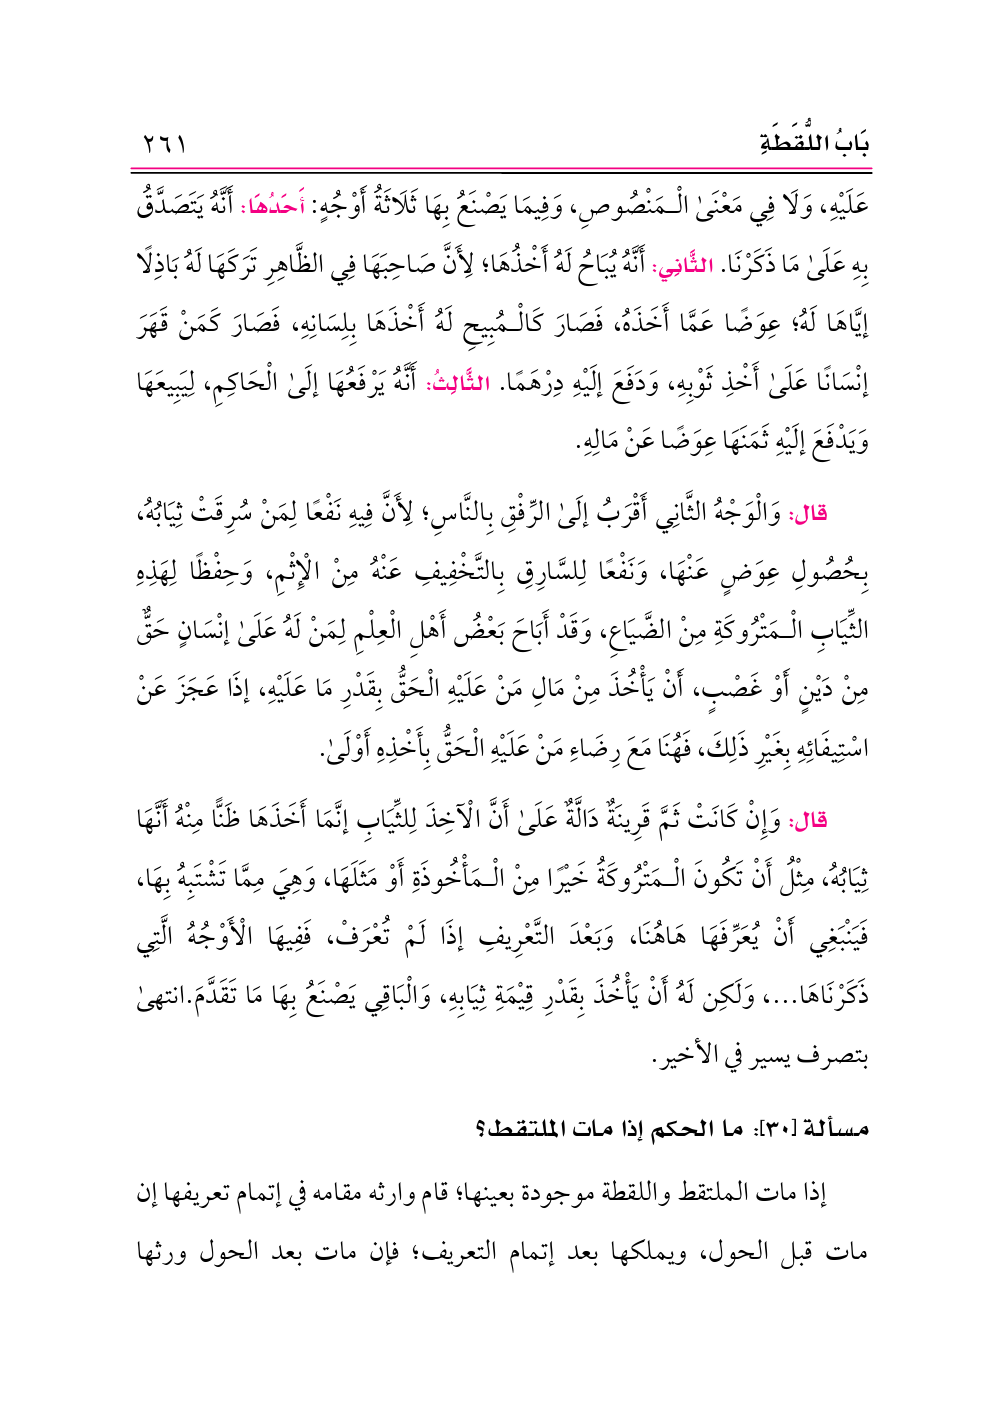 بَابُ اللُّقَطَةِ ٢٦١
عَلَيْهِ، وَلَا فِي مَعْنَىٰ الْـمَنْصُوصِ، وَفِيمَا يَصْنَعُ بِهَا ثَلَاثَةُ أَوْجُهٍ: أَحَدُهَا: أَنَّهُ يَتَصَدَّقُ
بِهِ عَلَىٰ مَا ذَكَرْنَا. الثَّانِي: أَنَّهُ يُبَاحُ لَهُ أَخْذُهَا؛ لِأَنَّ صَاحِبَهَا فِي الظَّاهِرِ تَرَكَهَا لَهُ بَاذِلًا
إيَّاهَا لَهُ؛ عِوَضًا عَمَّا أَخَذَهُ، فَصَارَ كَالْـمُبِيحِ لَهُ أَخْذَهَا بِلِسَانِهِ، فَصَارَ كَمَنْ قَهَرَ
إنْسَانًا عَلَىٰ أَخْذِ ثَوْبِهِ، وَدَفَعَ إلَيْهِ دِرْهَمًا. الثَّالِثُ: أَنَّهُ يَرْفَعُهَا إلَىٰ الْحَاكِمِ، لِيَبِيعَهَا
وَيَدْفَعَ إلَيْهِ ثَمَنَهَا عِوَضًا عَنْ مَالِهِ.
قال: وَالْوَجْهُ الثَّانِي أَقْرَبُ إلَىٰ الرِّفْقِ بِالنَّاسِ؛ لِأَنَّ فِيهِ نَفْعًا لِمَنْ سُرِقَتْ ثِيَابُهُ،
بِحُصُولِ عِوَضٍ عَنْهَا، وَنَفْعًا لِلسَّارِقِ بِالتَّخْفِيفِ عَنْهُ مِنْ الْإِثْمِ، وَحِفْظًا لِهَذِهِ
الثِّيَابِ الْـمَتْرُوكَةِ مِنْ الضَّيَاعِ، وَقَدْ أَبَاحَ بَعْضُ أَهْلِ الْعِلْمِ لِمَنْ لَهُ عَلَىٰ إنْسَانٍ حَقٌّ
مِنْ دَيْنٍ أَوْ غَصْبٍ، أَنْ يَأْخُذَ مِنْ مَالِ مَنْ عَلَيْهِ الْحَقُّ بِقَدْرِ مَا عَلَيْهِ، إذَا عَجَزَ عَنْ
اسْتِيفَائِهِ بِغَيْرِ ذَلِكَ، فَهُنَا مَعَ رِضَاءِ مَنْ عَلَيْهِ الْحَقُّ بِأَخْذِهِ أَوْلَىٰ.
قال: وَإِنْ كَانَتْ ثَمَّ قَرِينَةٌ دَالَّةٌ عَلَىٰ أَنَّ الْآخِذَ لِلثِّيَابِ إنَّمَا أَخَذَهَا ظَنًّا مِنْهُ أَنَّهَا
ثِيَابُهُ، مِثْلُ أَنْ تَكُونَ الْـمَتْرُوكَةُ خَيْرًا مِنْ الْـمَأْخُوذَةِ أَوْ مَثَلَهَا، وَهِيَ مِمَّا تَشْتَبِهُ بِهَا،
فَيَنْبَغِي أَنْ يُعَرِّفَهَا هَاهُنَا، وَبَعْدَ التَّعْرِيفِ إذَا لَمْ تُعْرَفْ، فَفِيهَا الْأَوْجُهُ الَّتِي
ذَكَرْنَاهَا...، وَلَكِن لَهُ أَنْ يَأْخُذَ بِقَدْرِ قِيْمَةِ ثِيَابِهِ، وَالْبَاقِي يَصْنَعُ بِهَا مَا تَقَدَّمَ.انتهىٰ
بتصرف يسير في الأخير.
مسألة [٣٠]: ما الحكم إذا مات الملتقط؟
إذا مات الملتقط واللقطة موجودة بعينها؛ قام وارثه مقامه في إتمام تعريفها إن
مات قبل الحول، ويملكها بعد إتمام التعريف؛ فإن مات بعد الحول ورثها